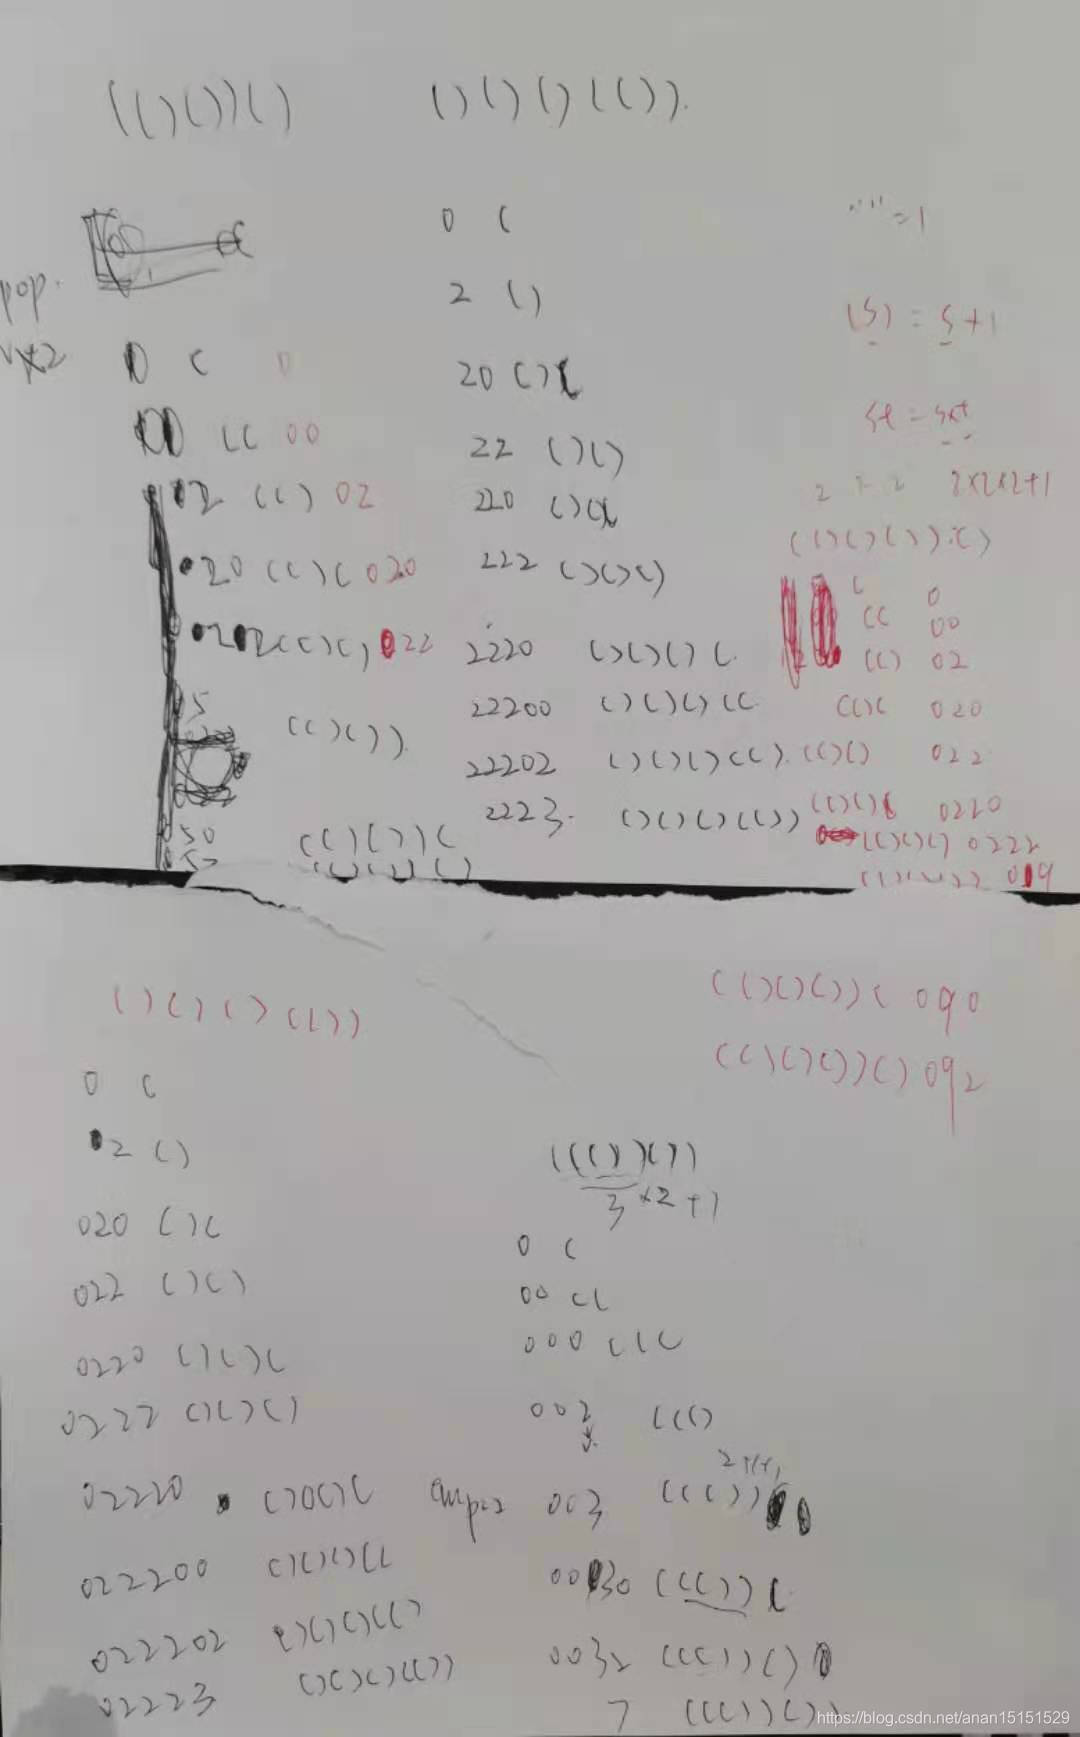 (()())() ()()()(()).
0 (
""=1
pop.
2 ()
(S) = S+1
0 ( 0
20 ()(
St = S×t
00 (( 00
22 ()()
2×2×2+1
02 (() 02
220 ()((
(()()()).()
020 (()( 020
222 ()()()
( 0
(( 00
022 (()() 022
2220 ()()()(.
(() 02
5 (()()).
22200 ()()()((
(()( 020
22202 ()()()(().
(()() 022
2223. ()()()(())
(()()( 0220
50 (()())(
(()()() 0222
(()()()) 019
()()()(())
(()()())( 090
(()()())() 092
0 (
2 ()
((())())
3×2+1
020 ()(
0 (
022 ()()
00 ((
0220 ()()(
000 (((
0222 ()()()
002 ((()
02220 ()()()(
003 ((())
022200 ()()()((
0030 ((())(
022202 ()()()(()
0032 ((())()
02223 ()()()(())
7 ((())())
https://blog.csdn.net/anan15151529